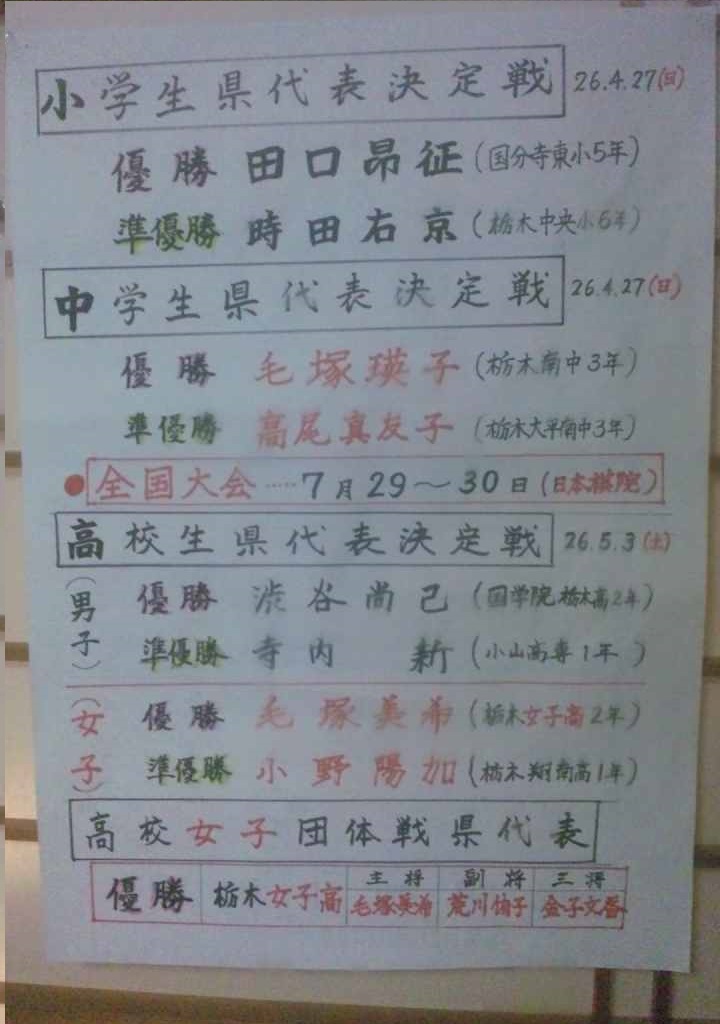 小学生県代表決定戦 26.4.27(日)
優勝 田口昂征(国分寺東小5年)
準優勝 時田右京(栃木中央小6年)
中学生県代表決定戦 26.4.27(日)
優勝 毛塚瑛子(栃木南中3年)
準優勝 高尾真友子(栃木大平南中3年)
●全国大会……7月29〜30日(日本棋院)
高校生県代表決定戦 26.5.3(土)
(男子) 優勝 渋谷尚己(国学院栃木高2年)
準優勝 寺内 新(小山高専1年)
(女子) 優勝 毛塚美希(栃木女子高2年)
準優勝 小野陽加(栃木翔南高1年)
高校女子団体戦県代表
主将 副将 三将
優勝 栃木女子高 毛塚美希 荒川 子 金子文香